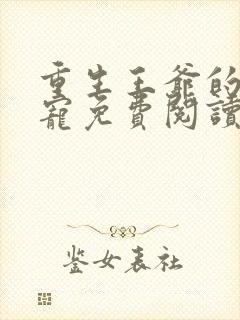 重生王爺的
寵免費閱讀
鉴女表社